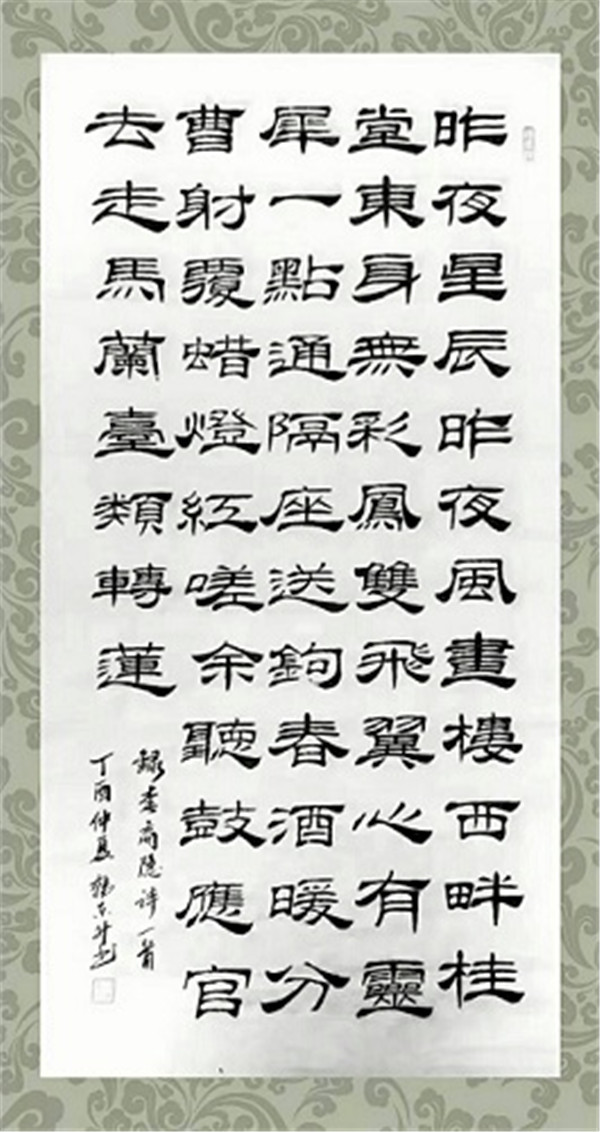 昨夜星辰昨夜風畫樓西畔桂
堂東身無彩鳳雙飛翼心有靈
犀一點通隔座送鉤春酒暖分
曹射覆蜡燈紅嗟余聽鼓應官
去走馬蘭臺類轉蓮
録李商隱詩一首
丁酉仲夏